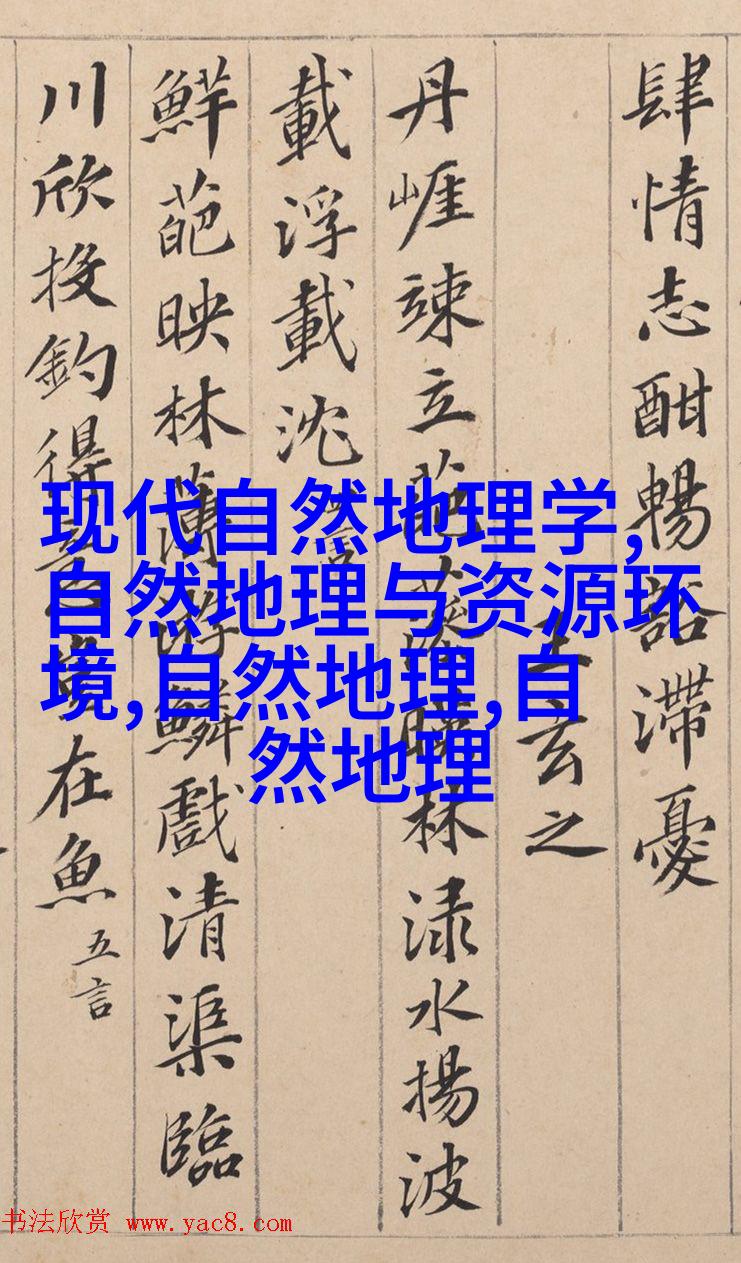 肆情志酣暢豁滯憂
王玄之
丹崖竦立葩藻暎林渌水揚波
載浮載沈
鮮葩映林薄游鱗戲清渠臨
川欣投釣得意豈在魚 五言
现代自然地理学,
自然地理与资源环
境,自然地理,自
然地理
书法欣赏 www.yac8.com